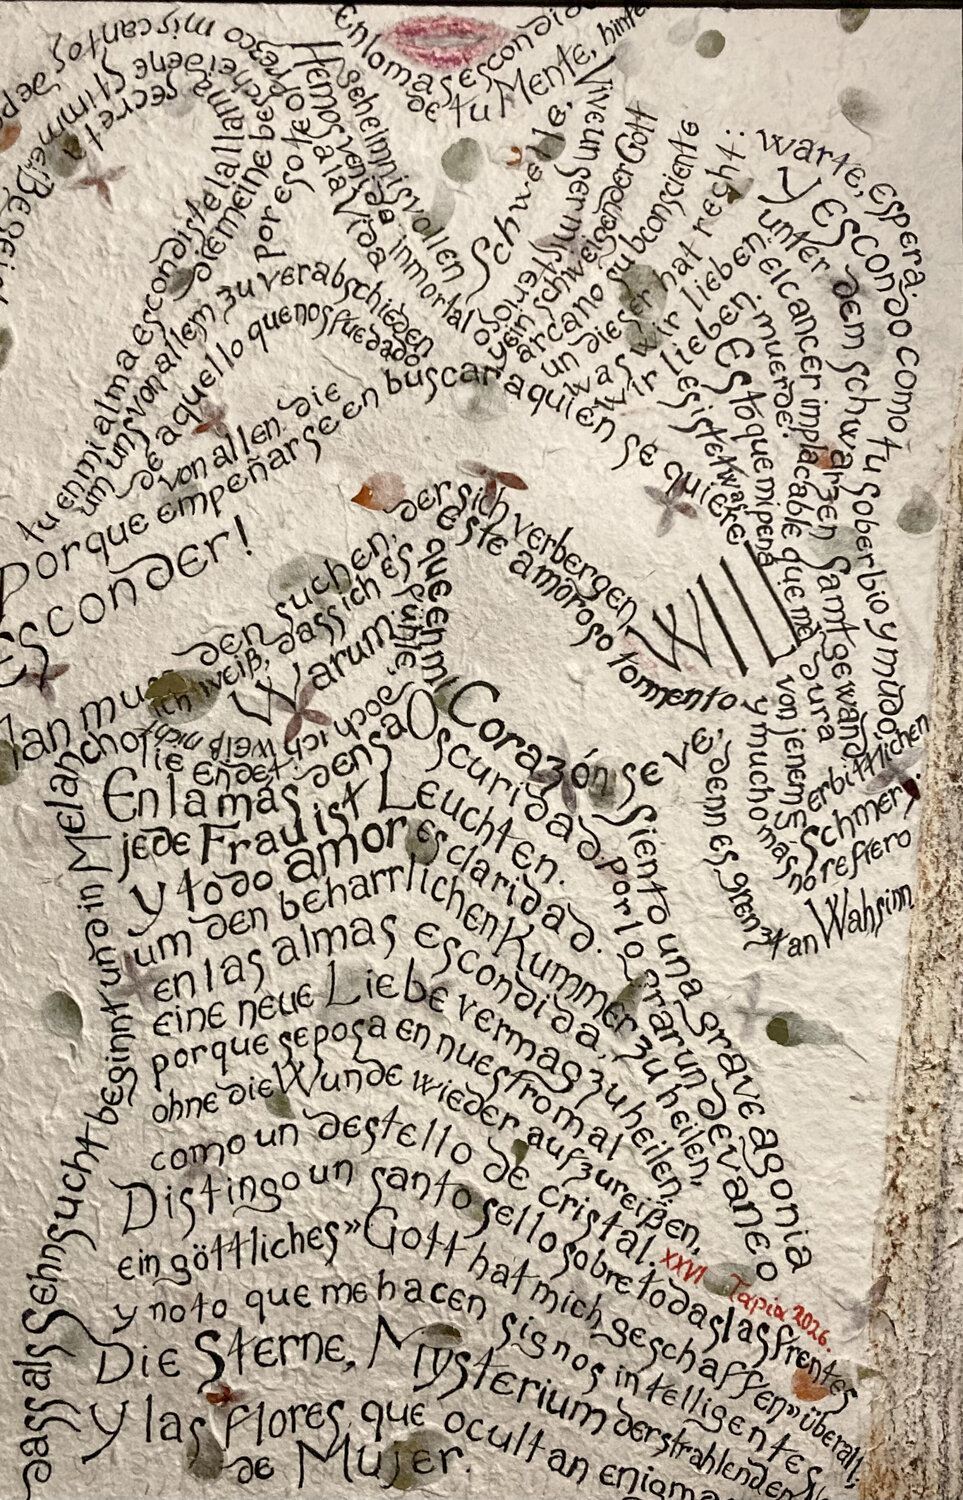 En lo mas escondido
de tu Mente, hinter
Schwelle,
mis cantos
secreta
Stimme
tu en mi alma escondiste la llama
die meine bescheidene
por eso te ofrezco
Hemos venido a la Vida
geheimnisvollen
inmortal
um uns von allem zu verabschieden
de aquello que nos fue dado
von allen. die
Porque empeñarse en buscar a quien se quiere
esconder!
Vive un ser misterioso
y ein schweigender Gott
arcano subconsciente
un dieser hat recht:
was wir lieben.
wir lieben.
warte, espera.
y escondo como tu soberbio y mudo
unter dem schwarzen Samtgewand
el cancer implacable que me dura
muerde.
Es to que mi pena
resiste! was
von jenem
erbittlichen
Schmerz.
y mucho mas
no refiero
denn es grenzt an Wahsinn
der sich verbergen
WILL
este amoroso tormento
que en mi Corazón se ve,
Man muß den suchen,
ich weiß, dass ich es
Warum
fühle,
doch ich weiß nicht
siento una grave agonia
por lograr un devaneo
dass als Sehnsucht beginnt und in Melancholie endet.
En la mas densa Oscuridad
jede Frau ist Leuchten.
y todo amor es claridad.
um den beharrlichen Kummer zu heilen"
en las almas escondida.
eine neue Liebe vermag zu heilen.
porque se posa en nuestro mal
ohne die Wunde wieder aufzureißen,
como un destello de cristal.
XXVI Tapia 2026.
Distingo un santo sello sobre todas las frentes
ein göttliches »Gott hat mich geschaffen« überall,
y noto que me hacen signos inteligentes
Die Sterne, Mysterium der strahlenden
y las flores, que ocultan enigma
de Mujer.